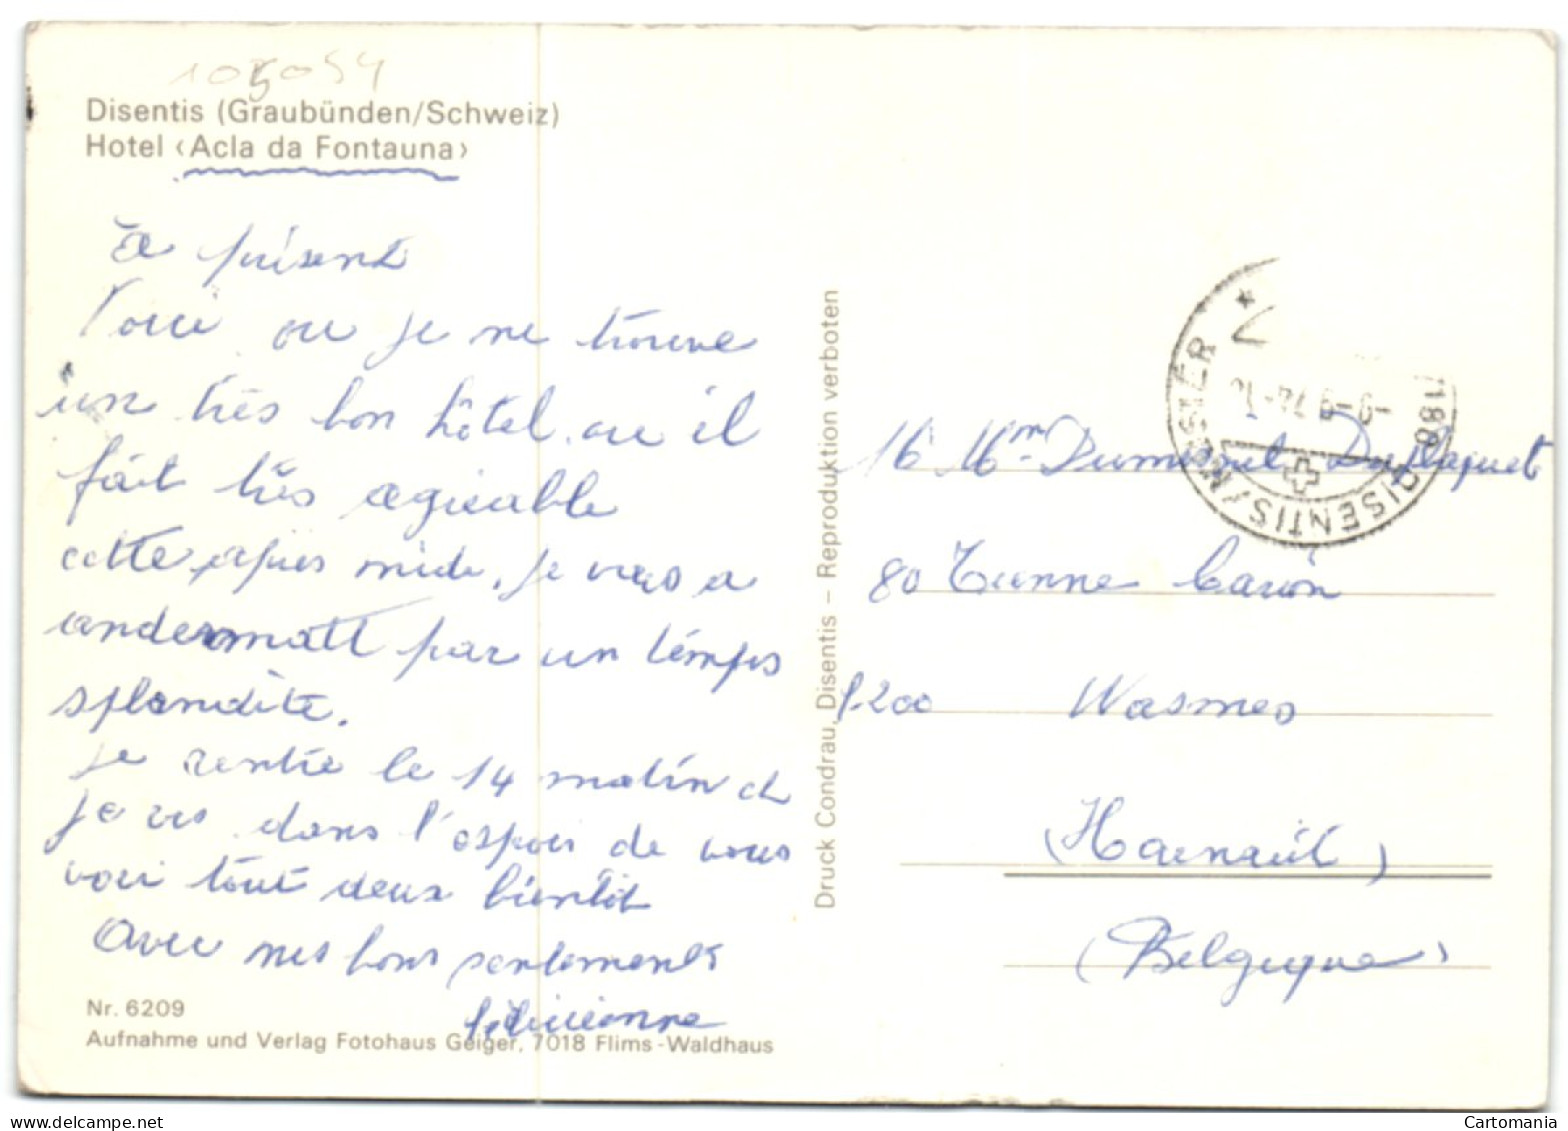 105054
Disentis (Graubünden/Schweiz)
Hotel ‹Acla da Fontauna›
a présent
Voici ou je me trouve
un très bon hôtel ou il
fait très agréable
cette après midi, je vais a
andermatt par un temps
splendite.
je rentre le 14 matin et
je vis dans l'espoir de vous
voir tout deux bientôt
Avec mes bons sentements
Félicienne
Nr. 6209
Aufnahme und Verlag Fotohaus Geiger, 7018 Flims-Waldhaus
Druck Condrau, Disentis – Reproduktion verboten
DISENTIS/MUSTÉR
-9-9 74-
Dumenil
80 Caron
7200 Wasmes
(Hainaut)
(Belgique)
Cartomania